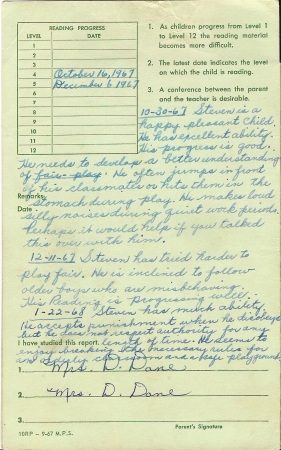 READING PROGRESS
LEVEL DATE
1
2
3
4 October 16, 1967
5 December 6 1967
6
7
8
9
10
11
12
1. As children progress from Level 1
to Level 12 the reading material
becomes more difficult.
2. The latest date indicates the level
on which the child is reading.
3. A conference between the parent
and the teacher is desirable.
10-30-67 Steven is a
happy pleasant child.
He has excellent ability.
His progress is good.
He needs to develop a better understanding
of fair play. He often jumps in front
of his classmates or hits them in the
Remarks:
stomach during play. He makes loud
Date
silly noises during quiet work periods.
Perhaps it would help if you talked
this over with him.
12-11-67 Steven has tried harder to
play fair. He is inclined to follow
older boys who are misbehaving.
His Reading is progressing well.
1-22-68 Steven has much ability.
He accepts punishment when he disobeys
but he does not respect authority for any
I have studied this report.
length of time. He seems to
enjoy breaking the necessary rules for
an orderly classroom and a safe playground.
1. Mrs. D. Dane
2. Mrs. D. Dane
3.
Parent's Signature
10RP - 9-67 M.P.S.